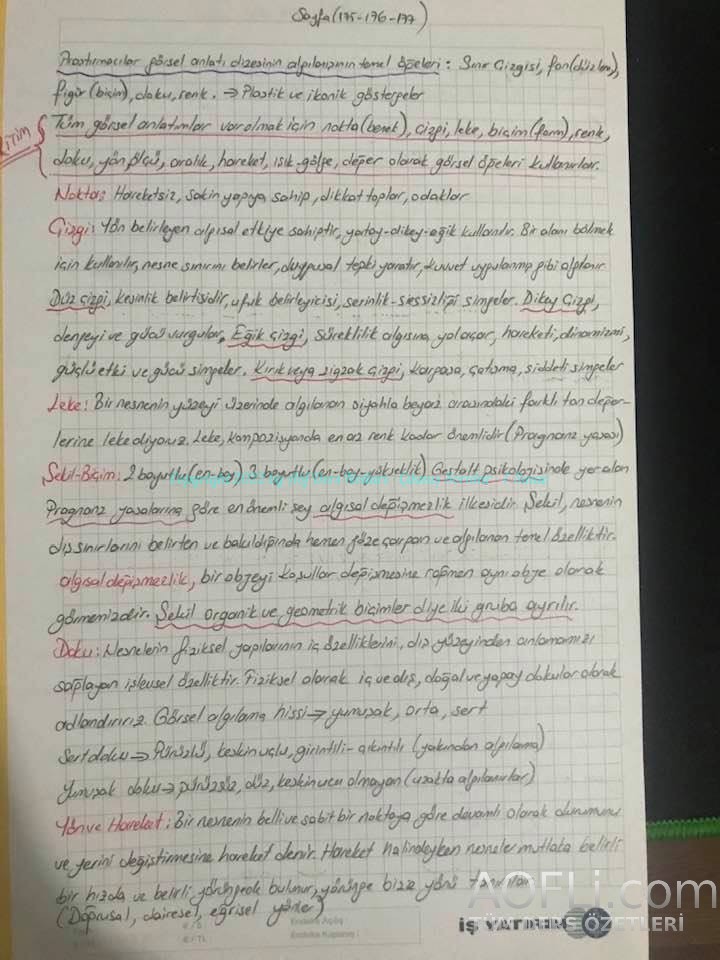 Sayfa (175-176-177)
Araştırmacılar görsel anlatı dizesinin algılanışının temel öğeleri: Sınır Çizgisi, fon (düzlem),
figür (biçim), doku, renk. → Plastik ve ikonik göstergeler
Tüm görsel anlatımlar var olmak için nokta (benek), çizgi, leke, biçim (form), renk,
doku, yön, ölçü, aralık, hareket, ışık-gölge, değer olarak görsel öğeleri kullanırlar.
Nokta: Hareketsiz, sakin yapıya sahip, dikkat toplar, odaklar
Çizgi: Yön belirleyen algısal etkiye sahiptir, yatay-dikey-eğik kullanılır. Bir alanı bölmek
için kullanılır, nesne sınırını belirler, duygusal tepki yaratır, kuvvet uygulanmış gibi algılanır
Düz çizgi, kesinlik belirtisidir, ufuk belirleyicisi, serinlik-sessizliği simgeler. Dikey Çizgi,
dengeyi ve gücü vurgular, Eğik çizgi, süreklilik algısına yol açar, hareketi, dinamizmi,
güçlü etki ve gücü simgeler. Kırık veya zigzak çizgi, karğaşa, çatışma, şiddeti simgeler
Leke: Bir nesnenin yüzeyi üzerinde algılanan siyahla beyaz arasındaki farklı ton değer-
lerine leke diyoruz. Leke, kompozisyonda en az renk kadar önemlidir (Pragnanz yasası)
Şekil-Biçim: 2 boyutlu (en-boy) 3 boyutlu (en-boy-yükseklik) Gestalt psikolojisinde yer alan
Pragnanz yasalarına göre en önemli şey algısal değişmezlik ilkesidir. Şekil, nesnenin
dış sınırlarını belirten ve bakıldığında hemen göze çarpan ve algılanan temel özelliktir.
algısal değişmezlik, bir objeyi koşullar değişmesine rağmen aynı obje olarak
görmemizdir. Şekil organik ve geometrik biçimler diye iki gruba ayrılır.
Doku: Nesnelerin fiziksel yapılarının iç özelliklerini, dış yüzeyinden anlamamızı
sağlayan işlevsel özelliktir. Fiziksel olarak iç ve dış, doğal ve yapay dokular olarak
adlandırırız. Görsel algılama hissi → yumuşak, orta, sert
Sert doku → Pürüzlü, keskin uçlu, girintili-çıkıntılı (yakından algılama)
Yumuşak doku → pürüzsüz, düz, keskin ucu olmayan (uzakta algılanırlar)
Yön ve Hareket: Bir nesnenin belli ve sabit bir noktaya göre devamlı olarak durumunu
ve yerini değiştirmesine hareket denir. Hareket halindeyken nesneler mutlaka belirli
bir hızda ve belirli yörüngede bulunur, yörünge bize yönü tanımlar
(Doğrusal, dairesel, eğrisel yönler)
AOFLi.com
TÜM DERS ÖZETLERİ
İŞ YATIRIM